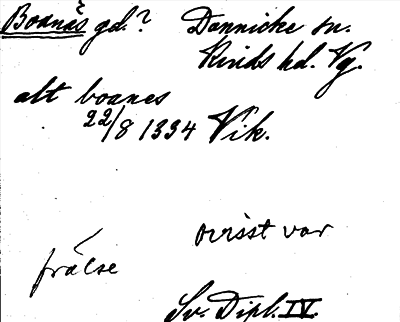 Boanäs gd.? Dannicke sn.
Kinds hd. Vg.
alt boanes
22/8 1334 Vik.
ovisst var
frälse
Sv. Dipl. IV.